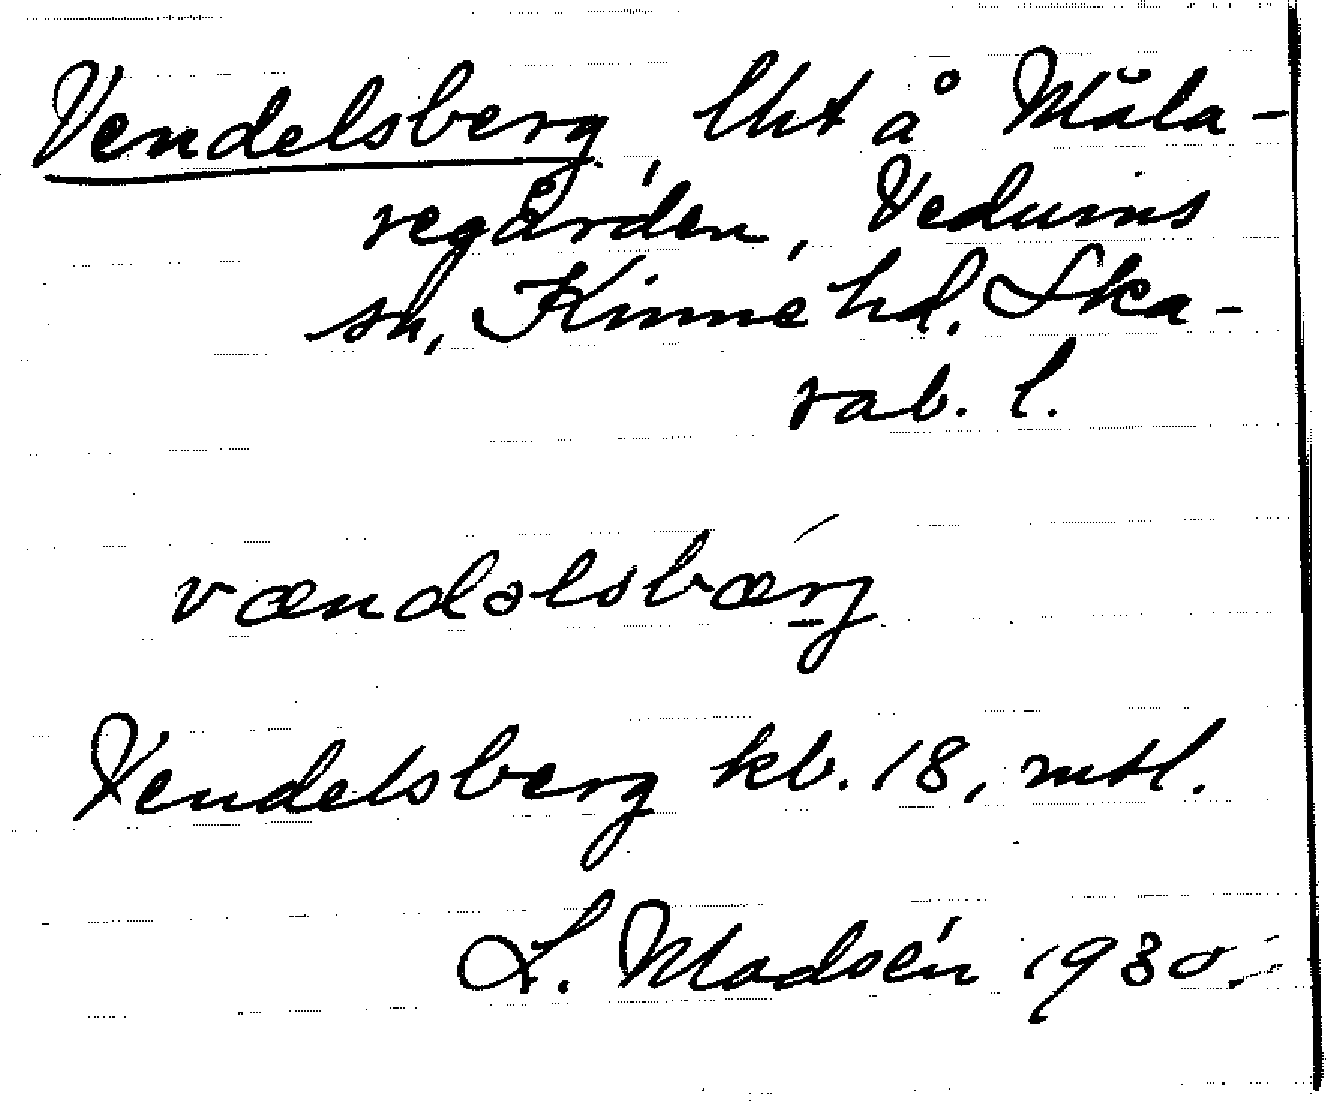 Vendelsberg, lht å Måla-
regården, Vedums
sn, Kinne hd. Ska-
rab. l.
vændəlsbærj
Vendelsberg kb. 18, mtl.
L. Madsén 1930.